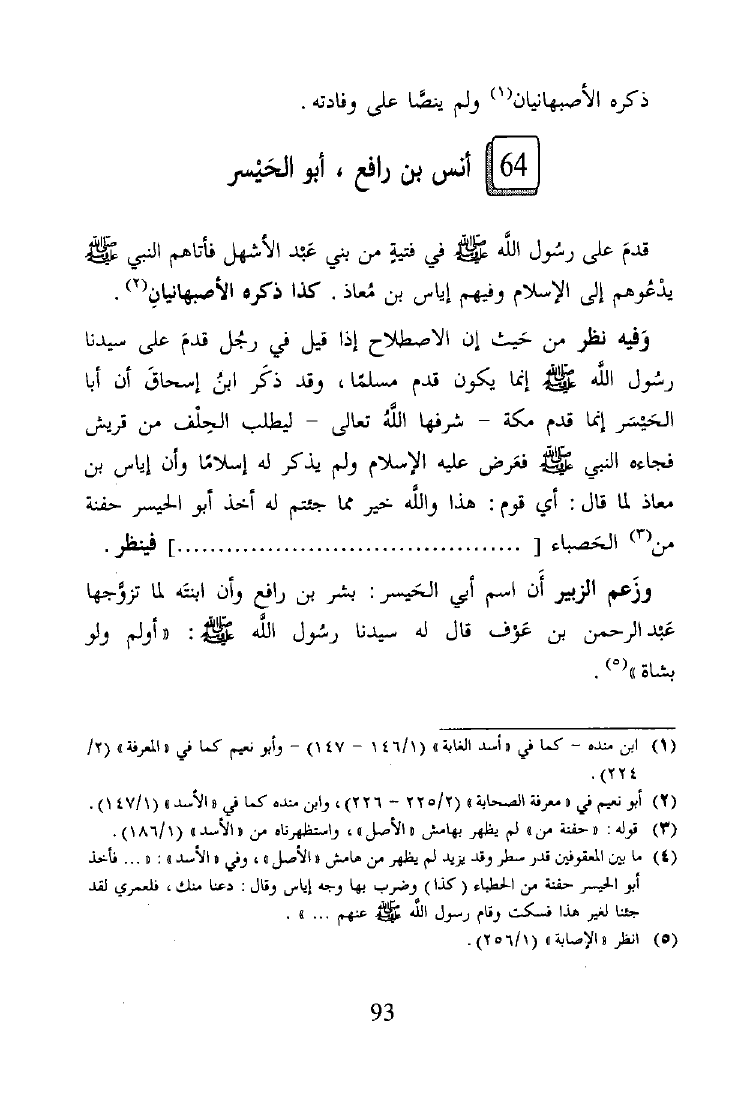 ذكره الأصبهانيان(١) ولم ينصَّا على وفادته .
64 أنس بن رافع ، أبو الحَيْسر
قدمَ على رسُول اللَّه ﷺ في فتيةٍ من بني عَبْد الأشهل فأتاهم النبي ﷺ
يدْعُوهم إلى الإسلام وفيهم إياس بن مُعاذ . كذا ذكره الأصبهانيانِ(٢) .
وَفيه نظر من حَيث إن الاصطلاح إذا قيل في رجُل قدمَ على سيدنا
رسُول اللَّه ﷺ إنما يكون قدم مسلمًا، وقد ذكَر ابنُ إسحاقَ أن أبا
الحَيْسَر إنما قدم مكة – شرفها اللَّهُ تعالى – ليطلب الحِلْف من قريش
فجاءه النبي ﷺ فعَرض عليه الإسلام ولم يذكر له إسلامًا وأن إياس بن
معاذ لما قال : أي قوم : هذا واللَّه خير مما جئتم له أخذ أبو الحيسر حفنة
من(٣) الحَصباء [ ..........................................] فينظر .
وزَعم الزبير أَن اسم أبي الحَيسر : بشر بن رافع وأن ابنتَه لما تزوَّجها
عَبْدالرحمن بن عَوْف قال له سيدنا رسُول اللَّه ﷺ : « أولم ولو
بشاة »(٥) .
(١) ابن منده – كما في « أسد الغابة » (١/ ١٤٦ – ١٤٧) – وأبو نعيم كما في « المعرفة » (٢/
٢٢٤) .
(٢) أبو نعيم في « معرفة الصحابة » (٢/ ٢٢٥ – ٢٢٦) ، وابن منده كما في « الأسد » (١/ ١٤٧) .
(٣) قوله : « حفنة من » لم يظهر بهامش « الأصل » ، واستظهرناه من « الأسد » (١/ ١٨٦) .
(٤) ما بين المعقوفين قدر سطر وقد يزيد لم يظهر من هامش « الأصل » ، وفي « الأسد » : « ... فأخذ
أبو الحيسر حفنة من الحطباء ( كذا ) وضرب بها وجه إياس وقال : دعنا منك ، فلعمري لقد
جئنا لغير هذا فسكت وقام رسول اللَّه ﷺ عنهم ... » .
(٥) انظر « الإصابة » (١/ ٢٥٦) .
93